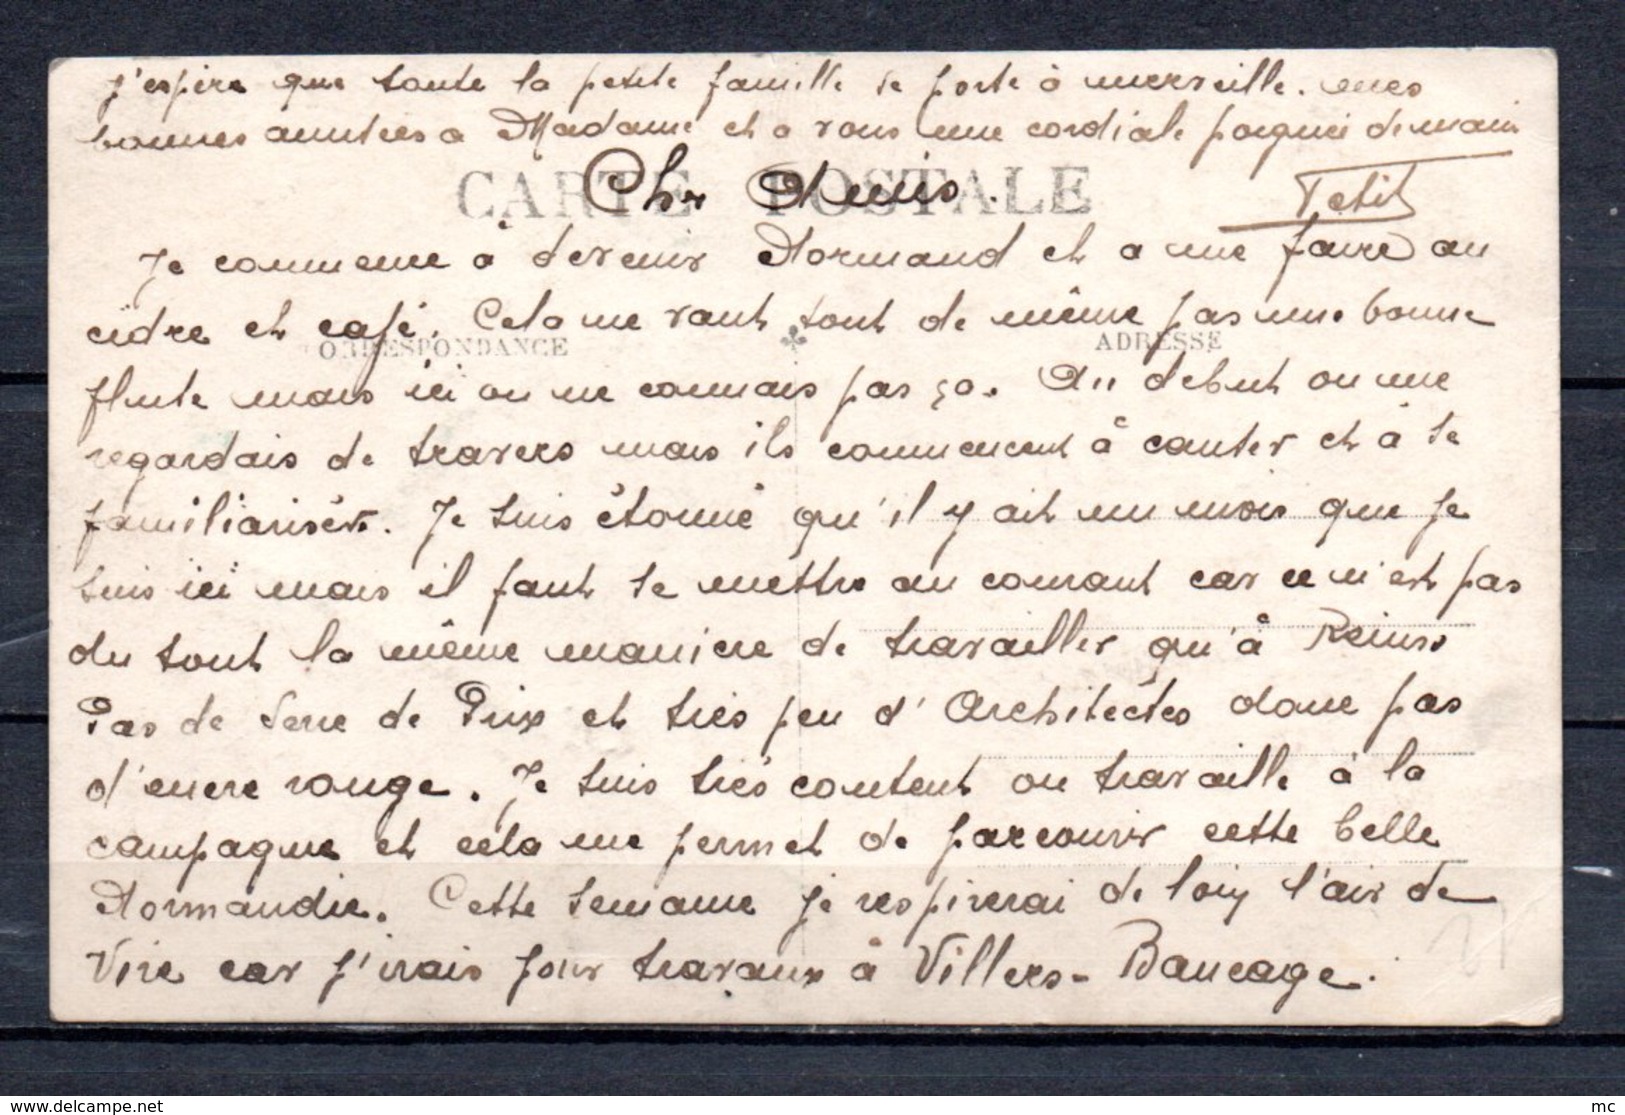 j'espère que toute la petite famille se porte à merveille. mes
bonnes amitiés à Madame et à vous une cordiale poignée de main
CARTE POSTALE
Cher Amis.
Petit
Je commence à devenir Normand et a me faire au
cidre et café. Cela ne vaut tout de même pas une bonne
CORRESPONDANCE
ADRESSE
flute mais ici on ne connais pas ça. Au debut on me
regardais de travers mais ils commencent à causer et à se
familiariser. Je suis étonné qu'il y ait un mois que je
suis ici mais il faut se mettre au courant car ce n'est pas
du tout la même maniere de travailler qu'à Reims
Pas de Serie de Prix et très peu d'Architectes donc pas
d'encre rouge. Je suis très content on travaille à la
campagne et cela me permet de parcourir cette belle
Normandie. Cette semaine je respirerai de loin l'air de
Vire car j'irais pour travaux à Villers-Boucage.
www.delcampe.net
mc